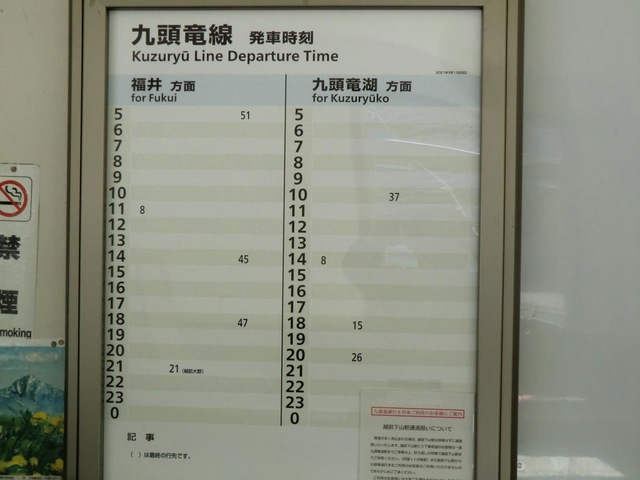 九頭竜線 発車時刻
Kuzuryū Line Departure Time
福井 方面 九頭竜湖 方面
for Fukui for Kuzuryūko
5 51 5
6 6
7 7
8 8
9 9
10 10 37
11 8 11
12 12
13 13
14 45 14 8
15 15
16 16
17 17
18 47 18 15
19 19
20 20 26
21 21 (越前大野) 21
22 22
23 23
0 0
記 事
( )は最終の行先です。
越前下山駅通過扱いについて
禁
煙
moking